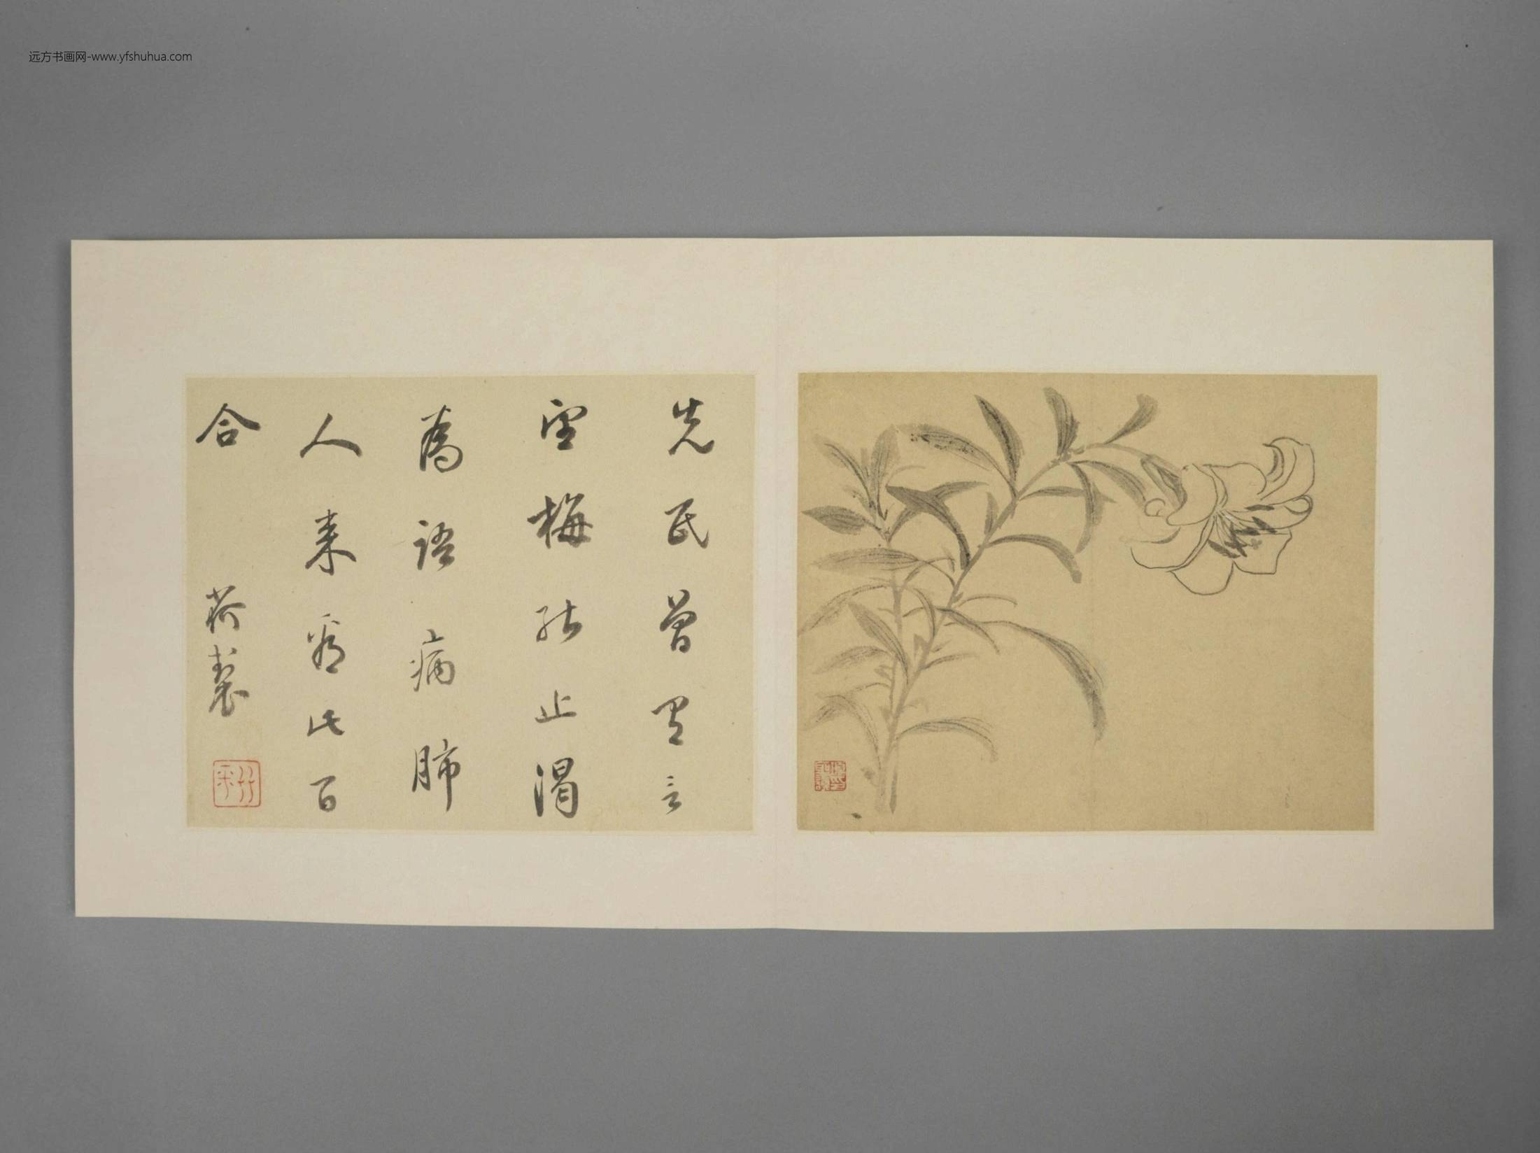 远方书画网-www.yfshuhua.com
先民曾有言
望梅能止渴
为语病肺
人来看此百
合